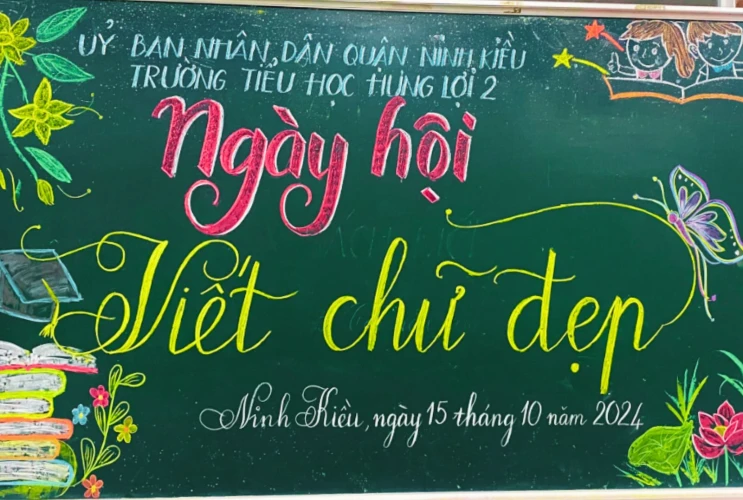 UỶ BAN NHÂN DÂN QUẬN NINH KIỀU
TRƯỜNG TIỂU HỌC HƯNG LỢI 2
Ngày hội
Viết chữ đẹp
Ninh Kiều, ngày 15 tháng 10 năm 2024